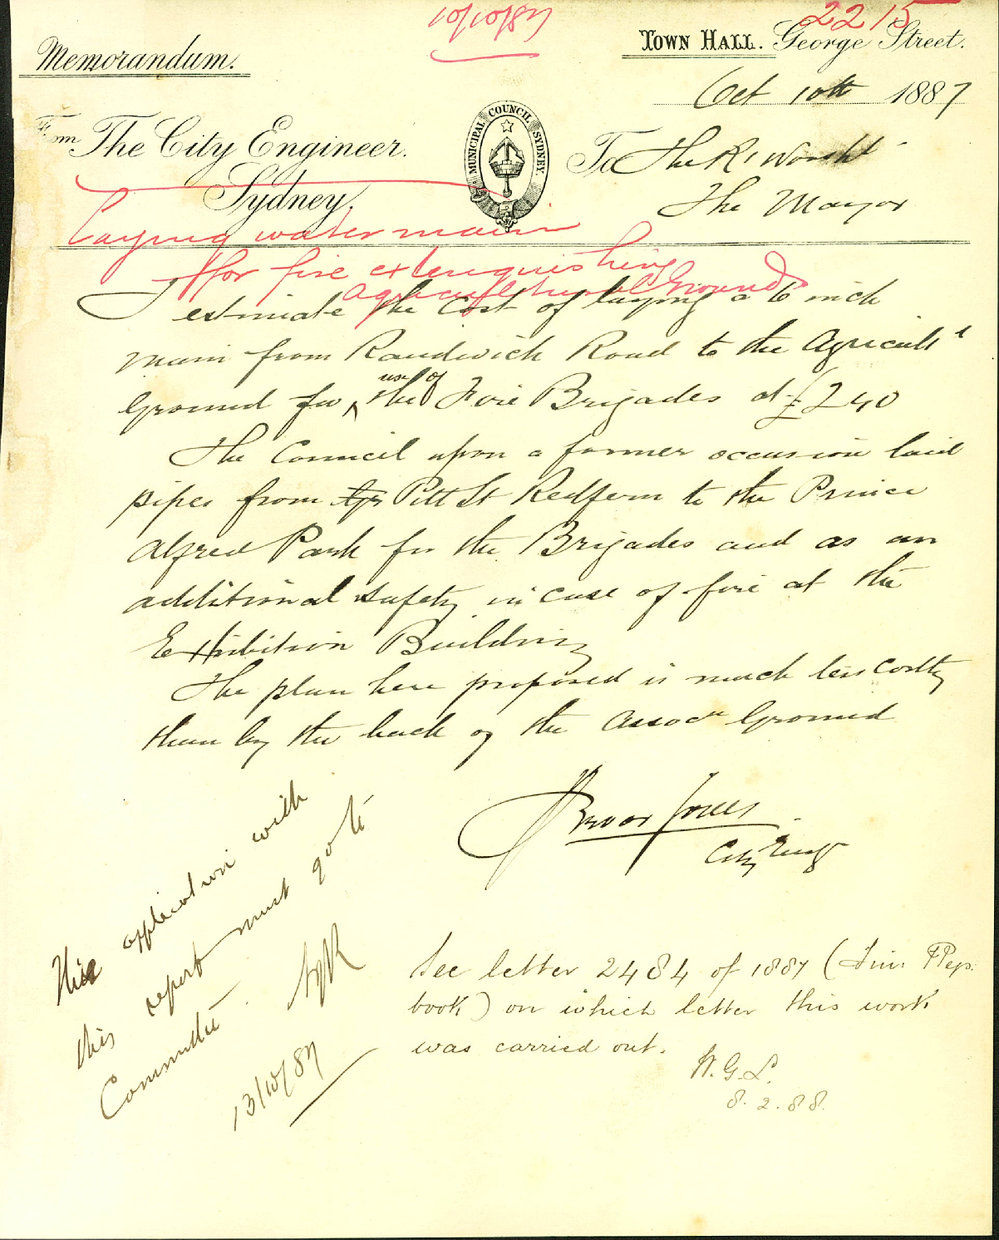 10/10/87
2215
Memorandum.
TOWN HALL. George Street.
Oct 10th 1887
From The City Engineer.
Sydney.
MUNICIPAL COUNCIL SYDNEY.
To The Rt Worshl
The Mayor
Laying water main
for fire extinguishing
Agricultural Ground
I estimate the cost of laying a 6 inch
main from Randwick Road to the Agricultl
Ground for the use of Fire Brigades at £240
The Council upon a former occasion laid
pipes from Pitt St Redfern to the Prince
Alfred Park for the Brigades and as an
additional safety in case of fire at the
Exhibition Building
The plan here proposed is much less costly
than by the back of the Assocn Ground
Trevor Jones
City Engr
This application with
this report must go to
Committee.
13/10/87
See letter 2484 of 1887 (
book) on which letter this work
was carried out.
8.2.88.